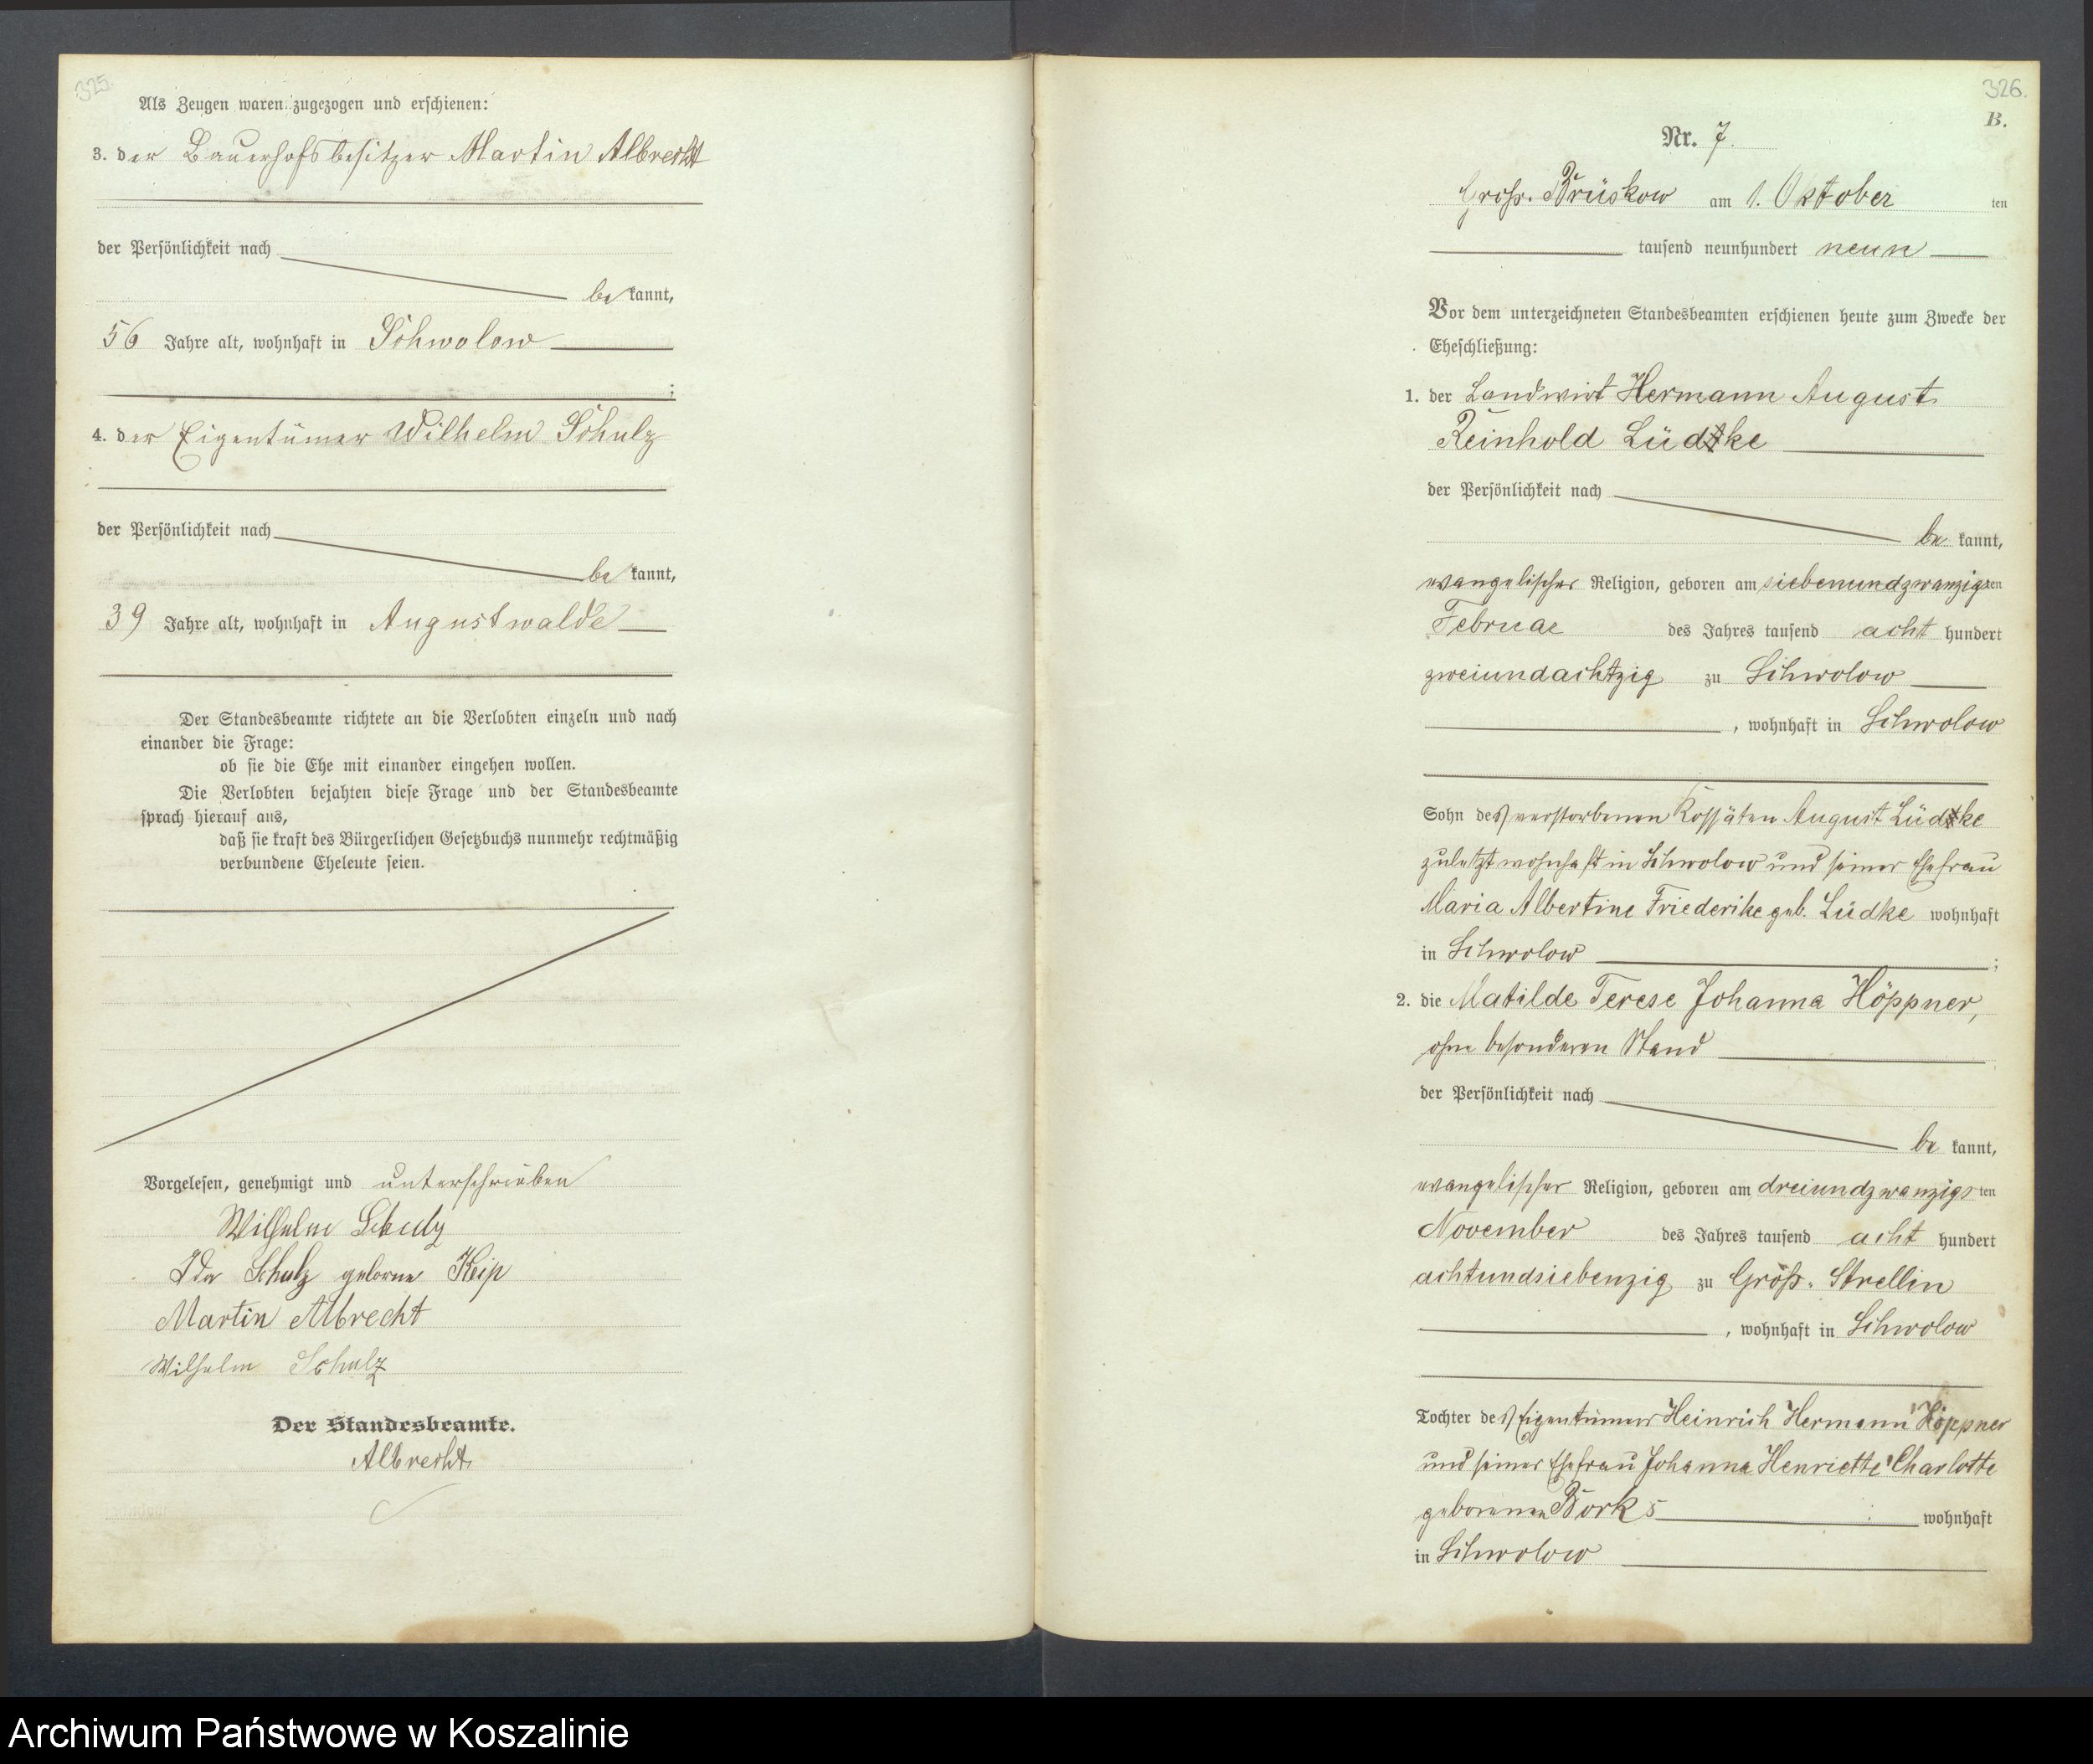 325.
Als Zeugen waren zugezogen und erschienen:
3. der Bauerhofsbesitzer Martin Albrecht
der Persönlichkeit nach
be kannt,
56 Jahre alt, wohnhaft in Schwolow
;
4. der Eigentümer Wilhelm Schulz
der Persönlichkeit nach
be kannt,
39 Jahre alt, wohnhaft in Augustwalde
Der Standesbeamte richtete an die Verlobten einzeln und nach
einander die Frage:
ob sie die Ehe mit einander eingehen wollen.
Die Verlobten bejahten diese Frage und der Standesbeamte
sprach hierauf aus,
daß sie kraft des Bürgerlichen Gesetzbuchs nunmehr rechtmäßig
verbundene Eheleute seien.
Vorgelesen, genehmigt und unterschrieben
Wilhelm Schulz
Ida Schulz geborne Keip
Martin Albrecht
Wilhelm Schulz
Der Standesbeamte.
Albrecht
326.
B.
Nr. 7.
Groß. Brüskow am 1. Oktober ten
tausend neunhundert neun
Vor dem unterzeichneten Standesbeamten erschienen heute zum Zwecke der
Eheschließung:
1. der Landwirt Hermann August
Reinhold Lüdtke
der Persönlichkeit nach
be kannt,
evangelischer Religion, geboren am siebenundzwanzigsten
Februar des Jahres tausend acht hundert
zweiundachtzig zu Schwolow
, wohnhaft in Schwolow
Sohn des verstorbenen Kossäten August Lüdtke
zuletzt wohnhaft in Schwolow und seiner Ehefrau
Maria Albertine Friederike geb. Lüdke wohnhaft
in Schwolow ;
2. die Matilde Terese Johanna Höppner,
ohne besonderen Stand
der Persönlichkeit nach
be kannt,
evangelischer Religion, geboren am dreiundzwanzigsten
November des Jahres tausend acht hundert
achtundsiebenzig zu Groß. Strellin
, wohnhaft in Schwolow
Tochter des Eigentümers Heinrich Hermann Höppner
und seiner Ehefrau Johanna Henriette Charlotte
geborenen Bork wohnhaft
in Schwolow
Archiwum Państwowe w Koszalinie